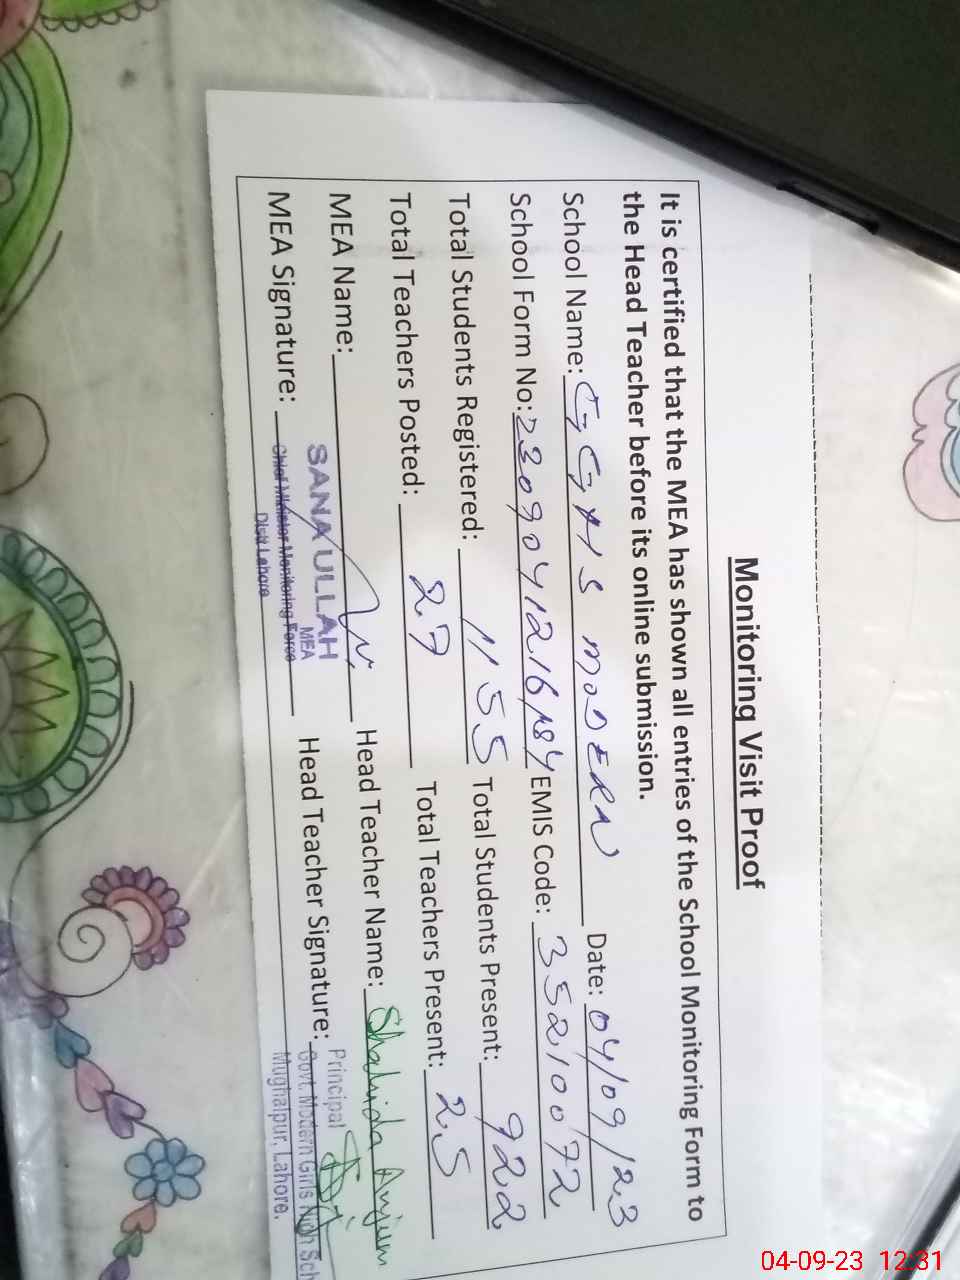 Monitoring Visit Proof
It is certified that the MEA has shown all entries of the School Monitoring Form to
the Head Teacher before its online submission.
School Name: GGHS MODERN Date: 04/09/23
School Form No: EMIS Code: 35210072
Total Students Registered: 1155 Total Students Present: 922
Total Teachers Posted: 27 Total Teachers Present: 25
MEA Name: Head Teacher Name: Shahida Anjum
SANA ULLAH
MEA
MEA Signature: Head Teacher Signature:
Chief Minister Monitoring Force
Distt Lahore
Principal
Govt. Modern Girls High Sch
Mughalpur, Lahore.
04-09-23 12:31